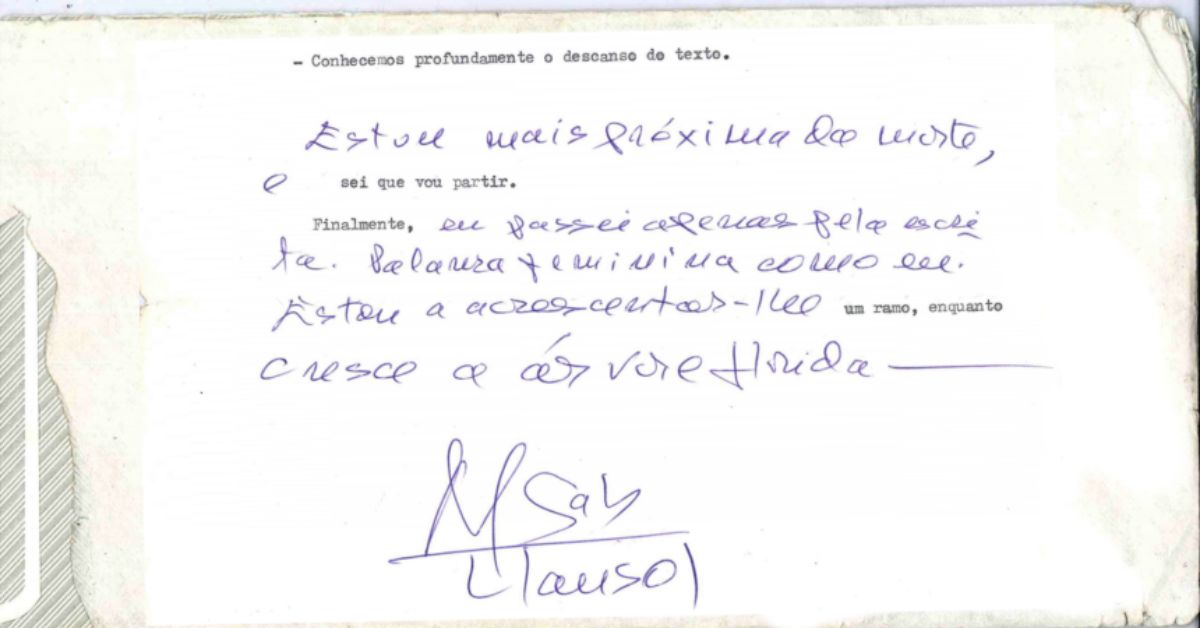 - Conhecemos profundamente o descanso do texto.
Estou mais próxima da morte,
e sei que vou partir.
Finalmente, eu passei apenas pela escri
ta. Balança feminina como eu.
Estou a acrescentar-lhe um ramo, enquanto
cresce a árvore florida
M Gab
Llansol